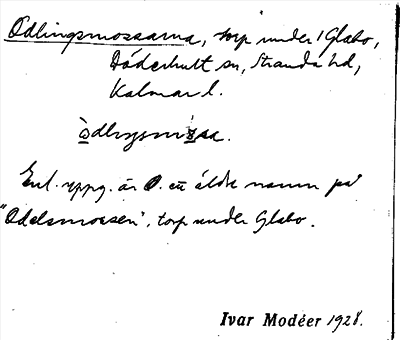 Odlingsmossarna, torp under 1 Glabo,
Döderhult sn, Stranda hd,
Kalmar l.
òdlıŋsmɷ̀sa.
Enl. uppg. är O. ett äldre namn på
"Odelsmossen", torp under Glabo.
Ivar Modéer 1928.